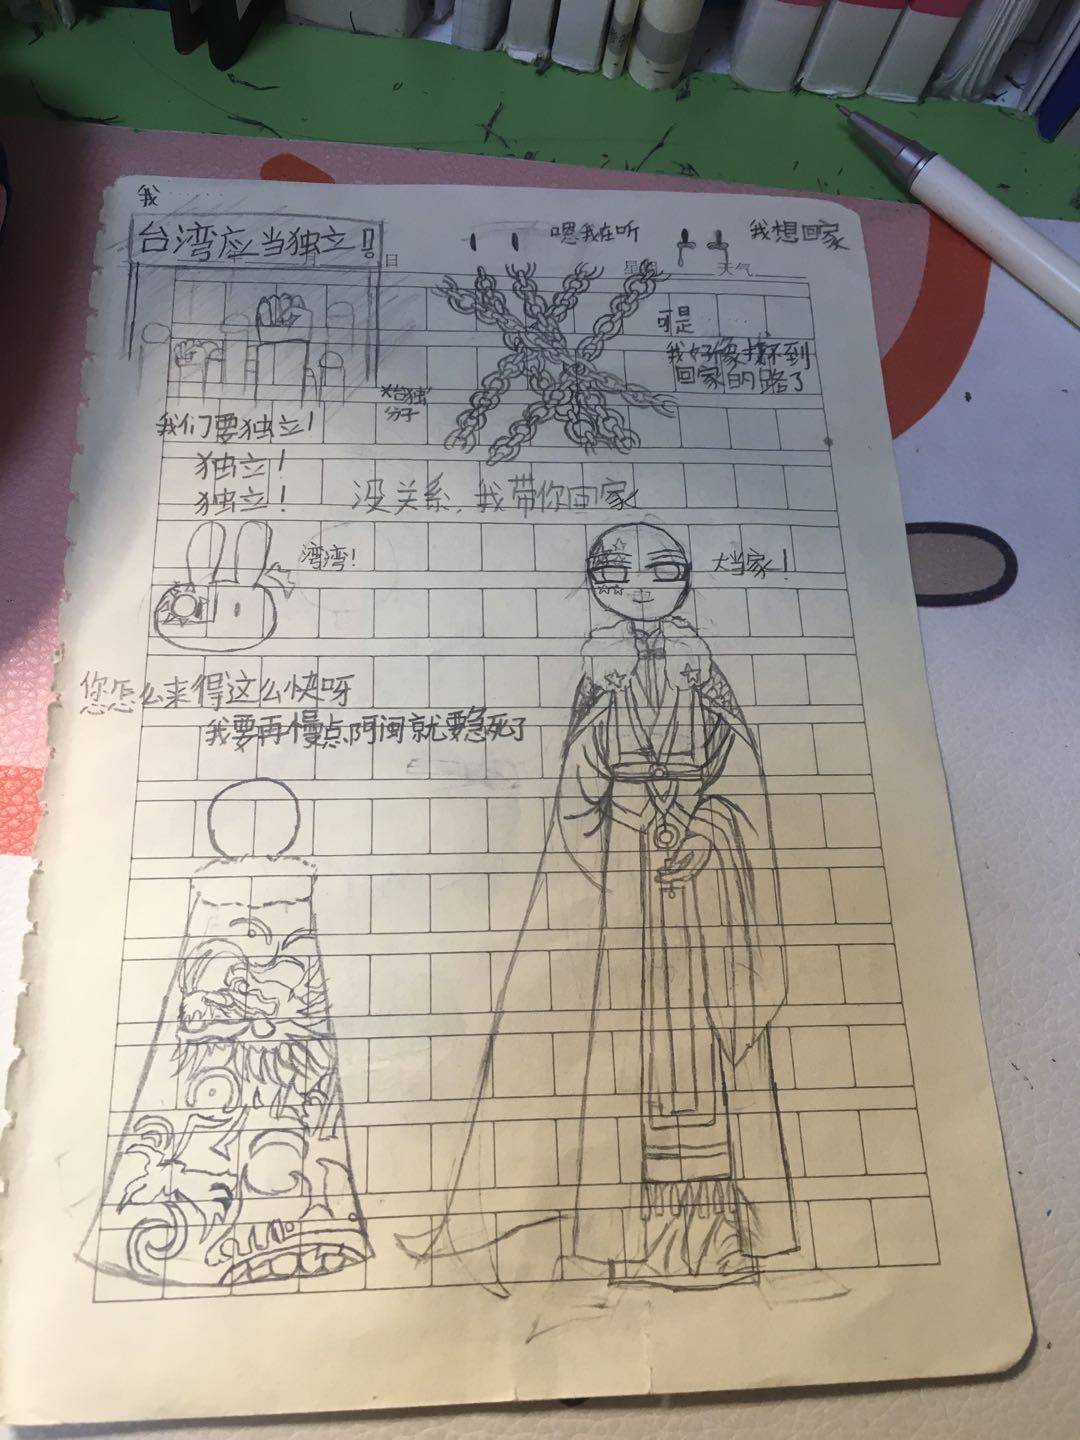 我
台湾应当独立!
嗯我在听
我想回家
日
星期
天气
可是
我好像找不到
回家的路了
×台独
分子
我们要独立!
独立!
独立!
没关系,我带你回家
湾湾!
大当家!
您怎么来得这么快呀
我要再慢点,阿闽就要急死了